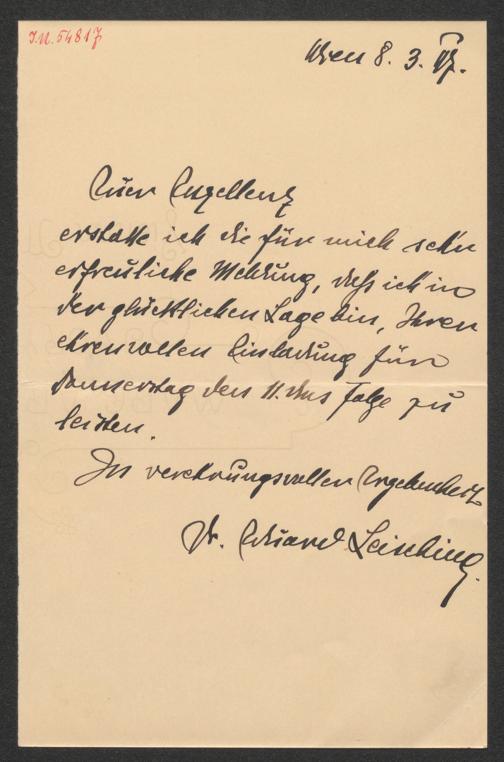 I.N. 54817
Wien 8. 3. 97.
Euer Exzellenz
erstatte ich die für mich sehr
erfreuliche Meldung, daß ich in
der glücklichen Lage bin, Ihrer
ehrenvollen Einladung für
Donnerstag den 11. dns Folge zu
leisten.
In verehrungsvoller Ergebenheit
Dr. Eduard Leisching.